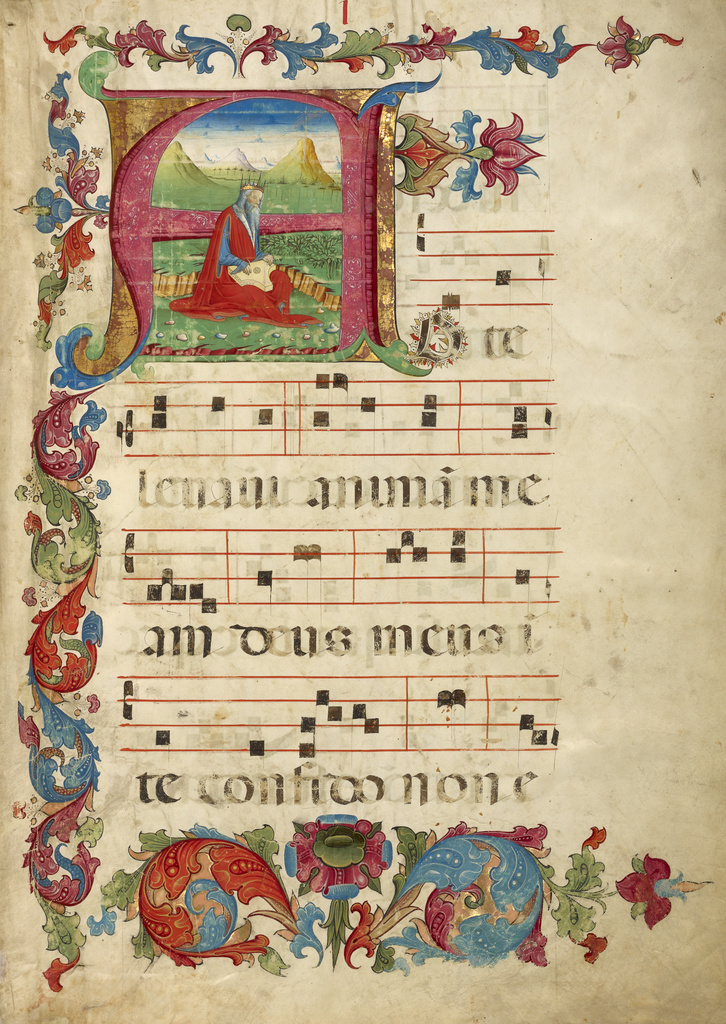 I
AD te
leuaui animã me
am deus meus i
te confido non e